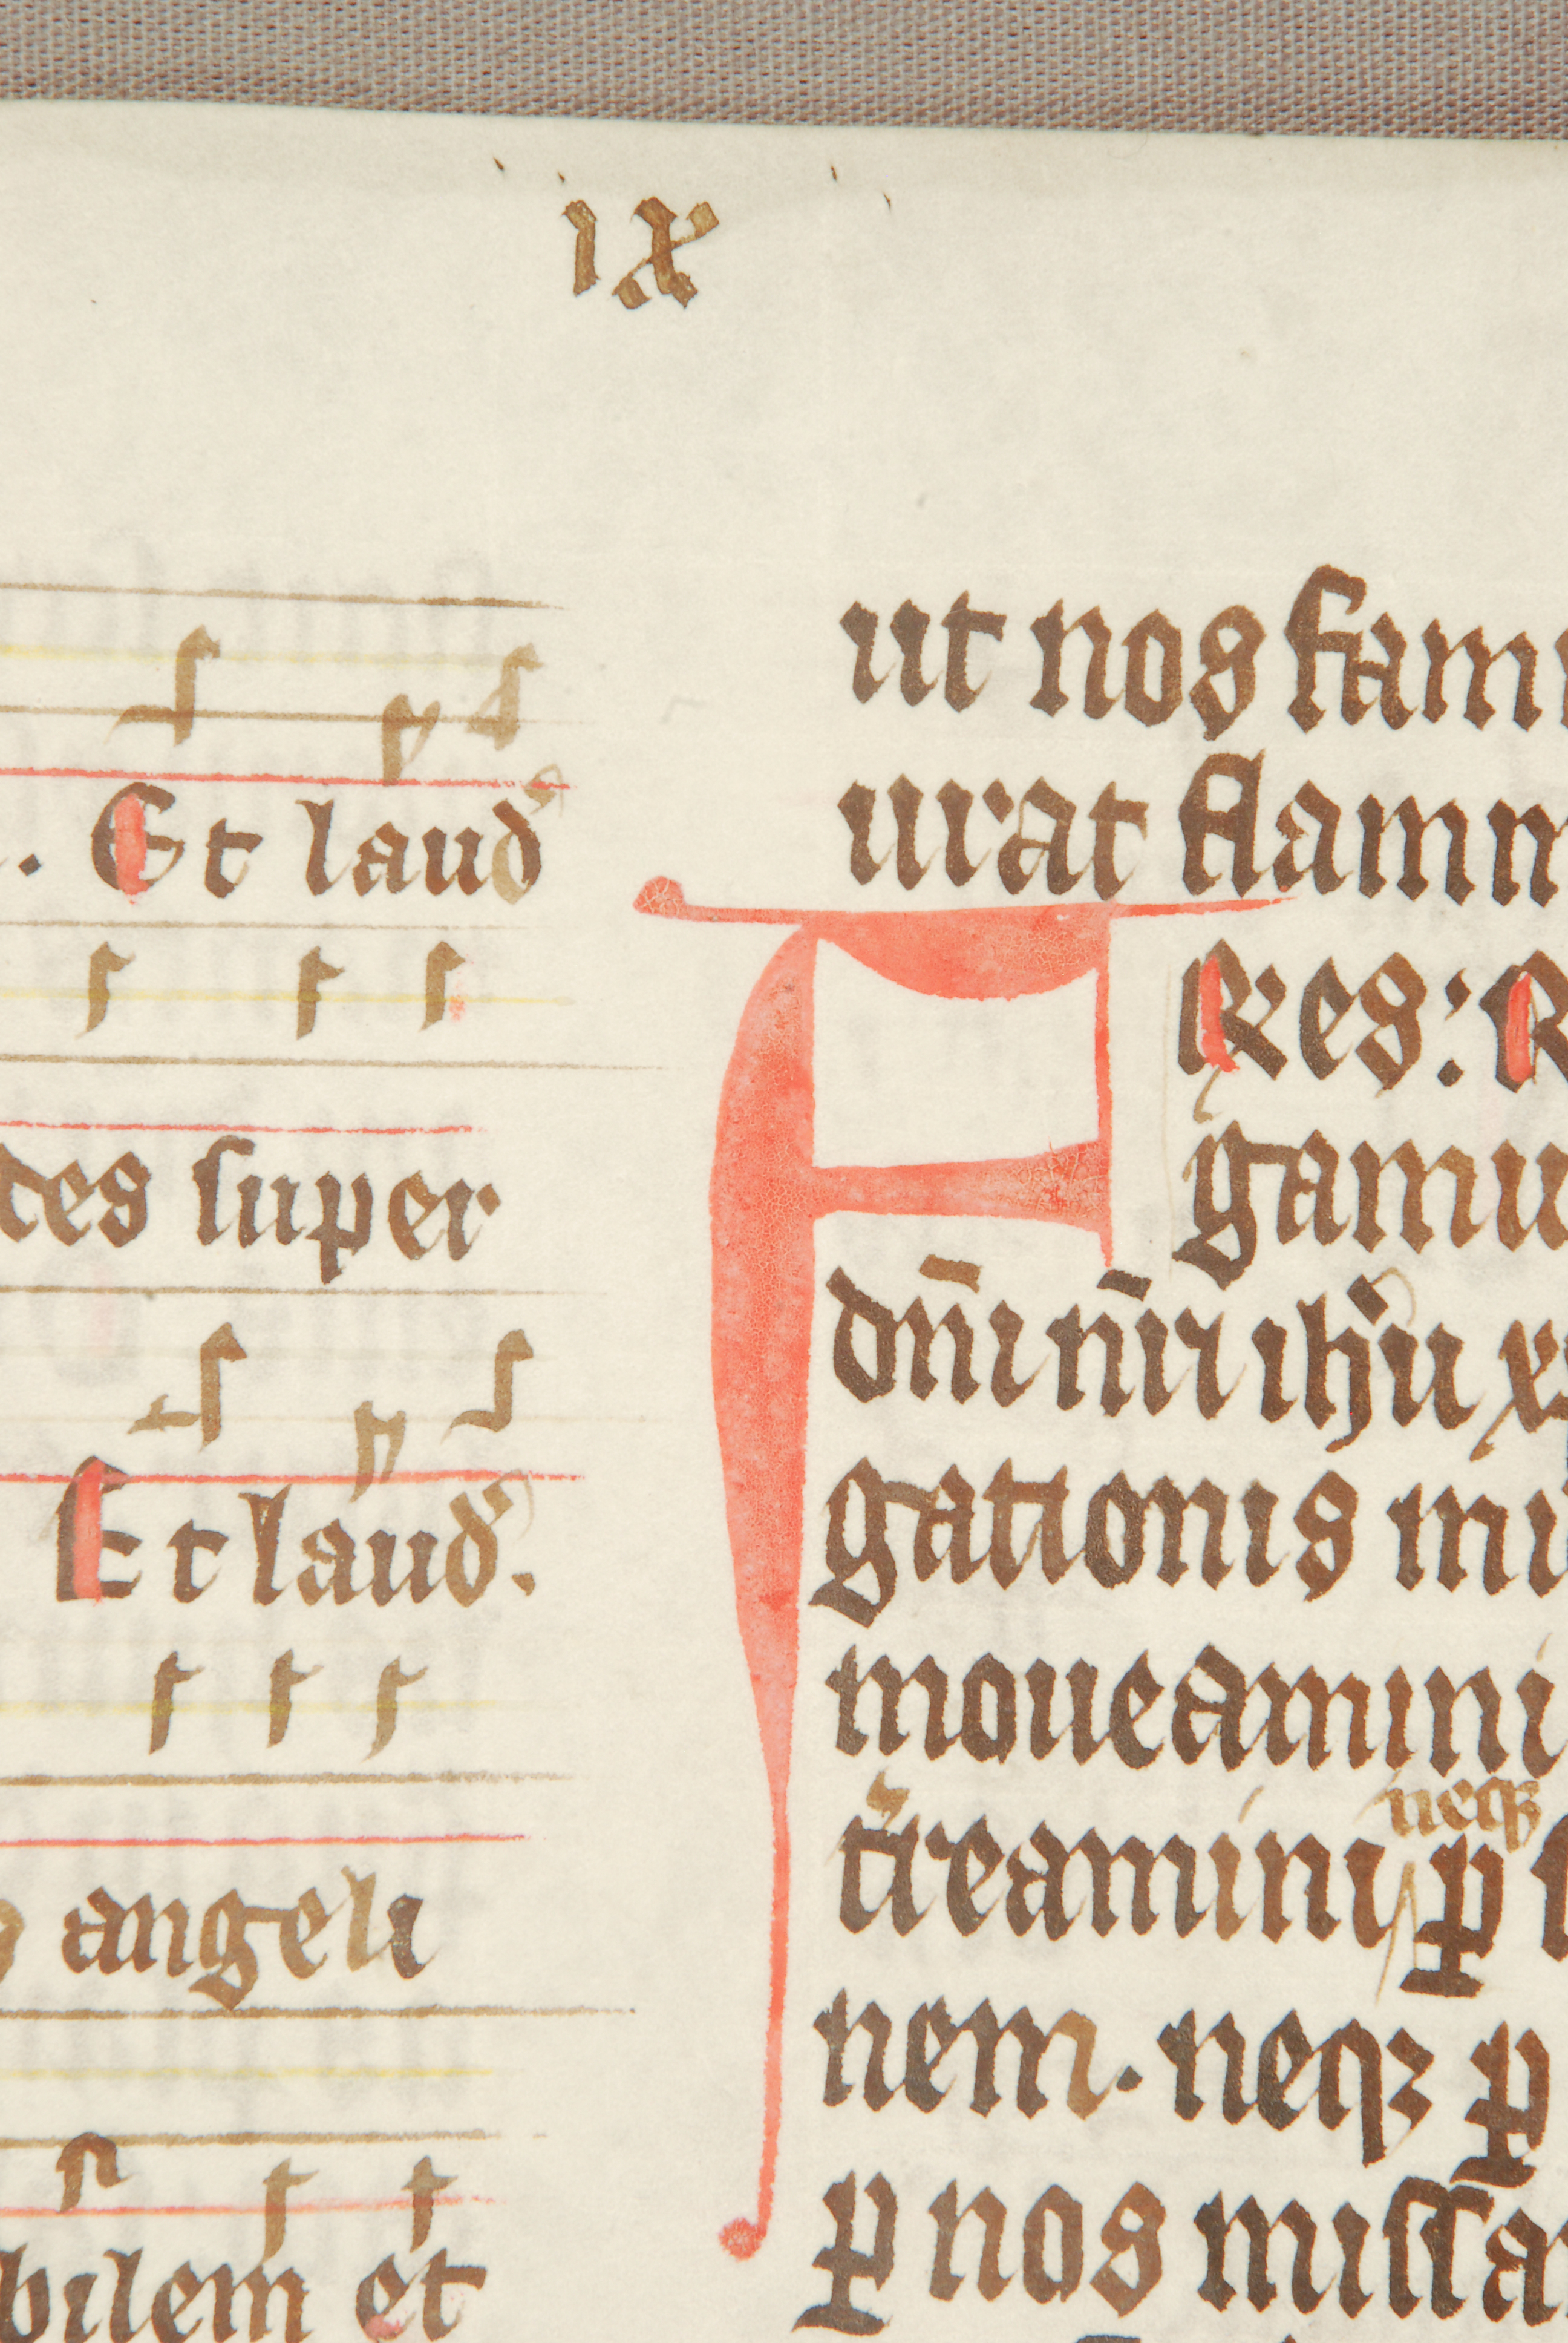 ıx
. Et laud᷎
tes ſuper
Et laud᷎.
angeli
bilem et
ut nos fam
urat flamm
FRes: R
gamu
dn̄i nr̄i ıh̓u x
gationis mi
moueamini
t̓reamini neqꝫ ꝑ
nem. neqꝫ ꝑ
ꝑ nos miſſa